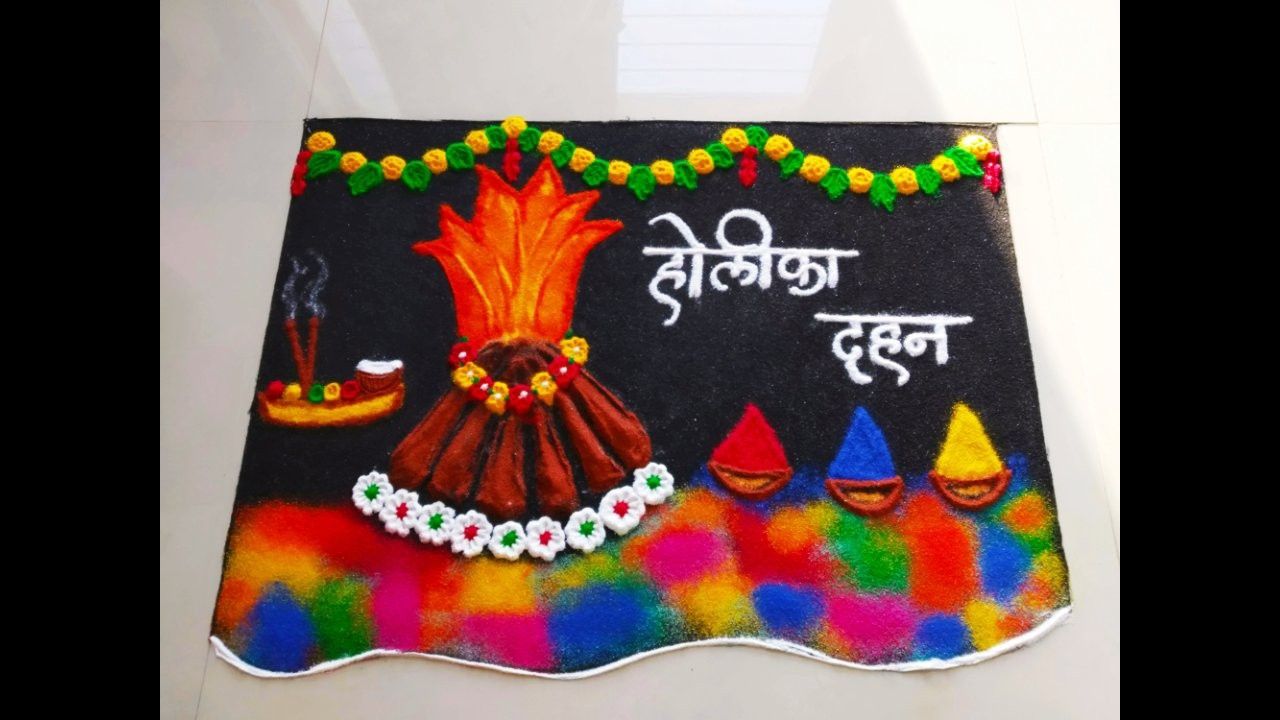 होलीका
दहन